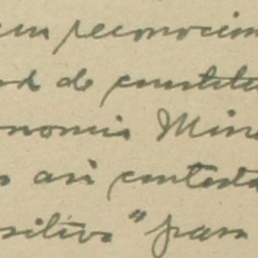 un reconocim
d de constitu
onomia Min
asi contesta
sitivo" para